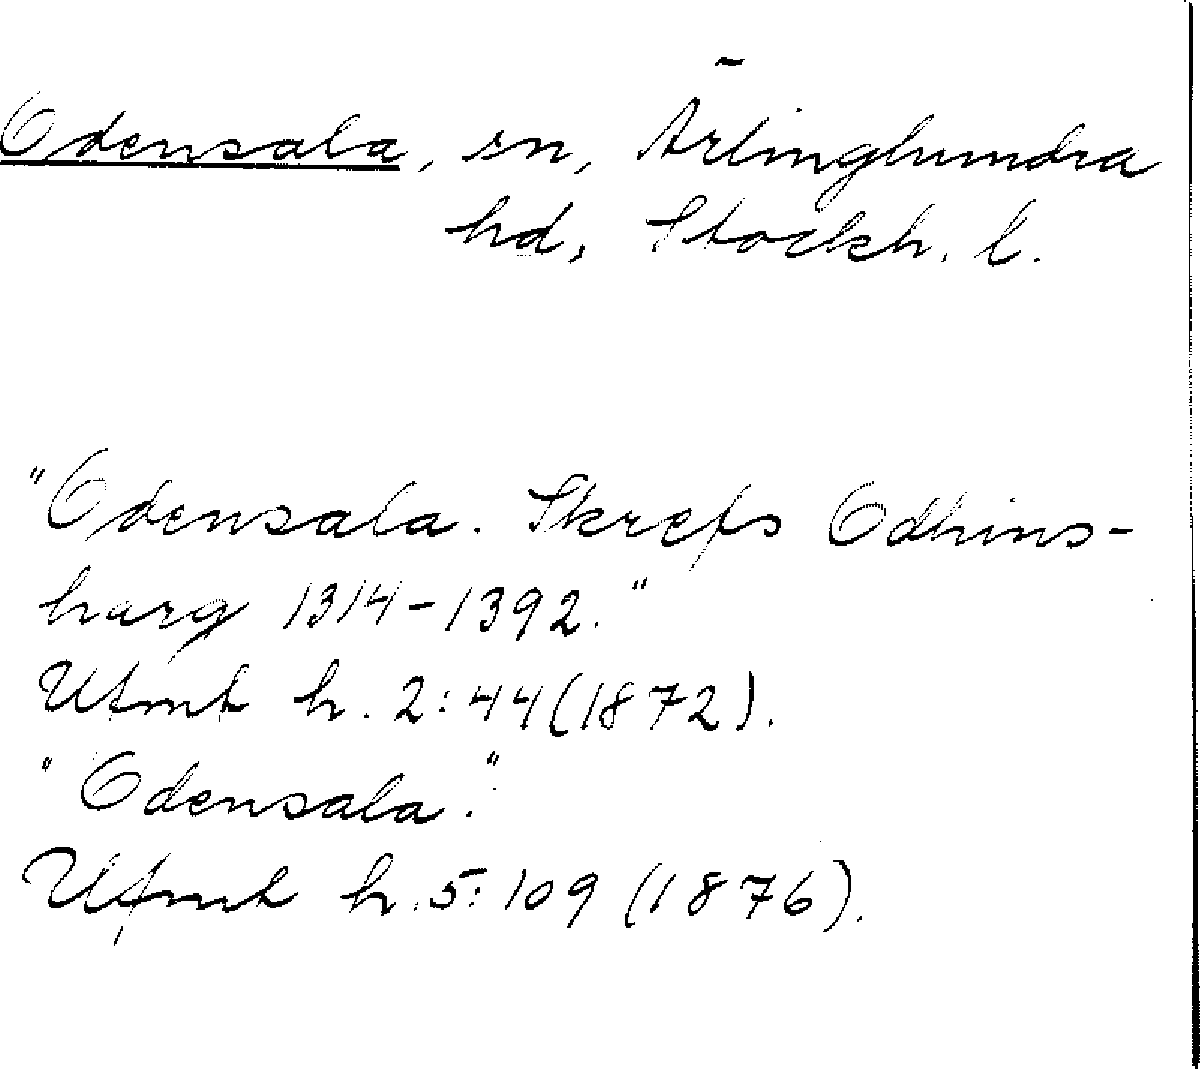 Odensala, sn, Ärlinghundra
hd, Stockh. l.
"Odensala. Skrefs Odhins-
harg 1314-1392."
Ufmt h. 2:44 (1872).
"Odensala."
Ufmt h. 5:109 (1876).